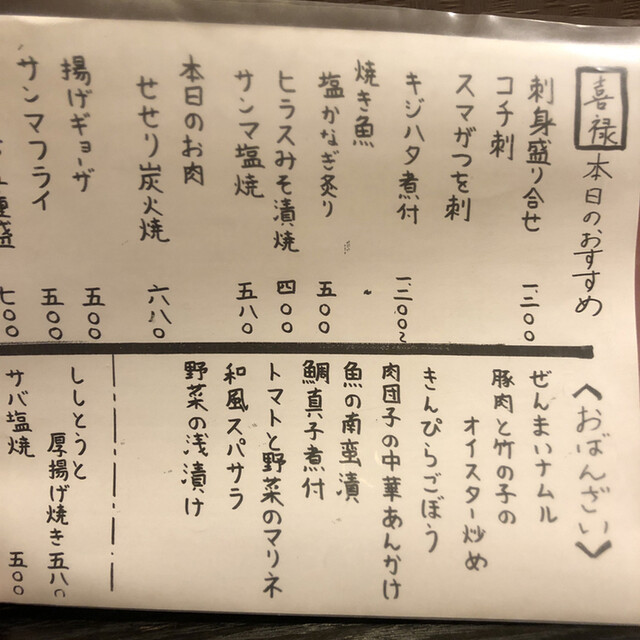 喜禄 本日のおすすめ
刺身盛り合せ 一、二〇〇
コチ刺
スマがつを刺
キジハタ煮付 一、三〇〇〜
焼き魚
塩かなぎ炙り 五〇〇
ヒラスみそ漬焼 四〇〇
サンマ塩焼 五八〇
本日のお肉
せせり炭火焼 六八〇
揚げギョーザ 五〇〇
サンマフライ 五〇〇
種盛 七〇〇
〈おばんざい〉
ぜんまいナムル
豚肉と竹の子の
オイスター炒め
きんぴらごぼう
肉団子の中華あんかけ
魚の南蛮漬
鯛真子煮付
トマトと野菜のマリネ
和風スパサラ
野菜の浅漬け
ししとうと
厚揚げ焼き 五八〇
サバ塩焼 五〇〇